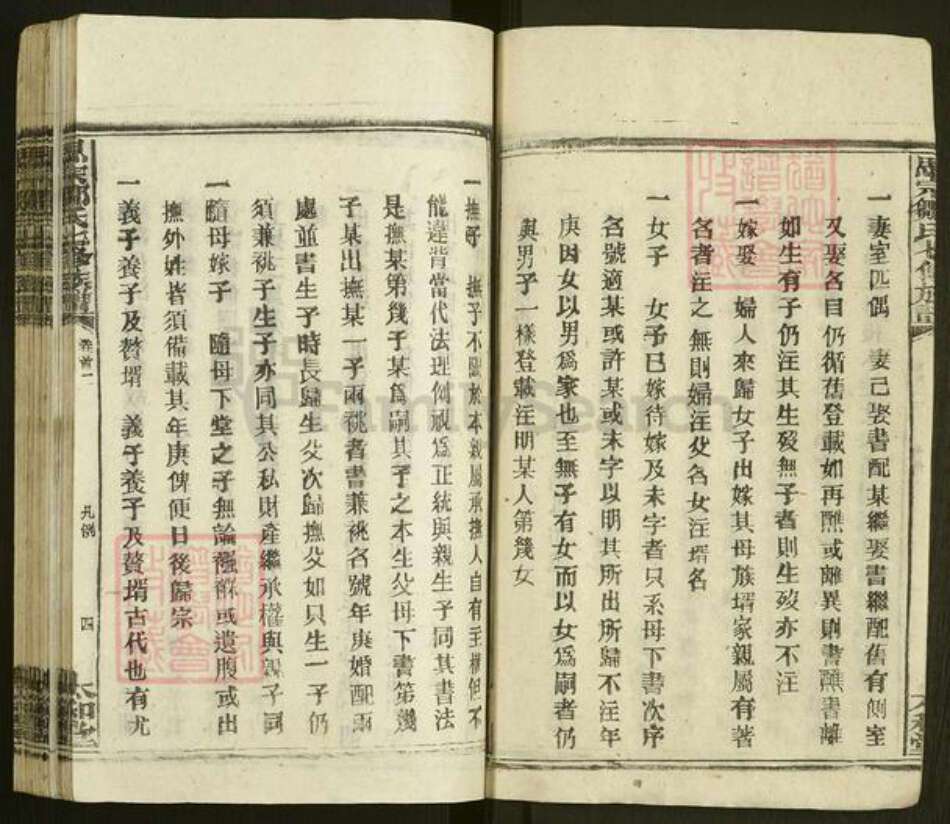 一妻室匹偶 妻已娶書配某繼娶書繼配舊有側室
又娶各目仍循舊登載如再醮或離異則書醮書離
如生有子仍注其生歿無子者則生歿亦不注
一嫁娶 婦人來歸女子出嫁其母族壻家親屬有著
名者注之無則婦注父名女注壻名
一女子 女子已嫁待嫁及未字者只系母下書次序
名號適某或許某或未字以明其所出所歸不注年
庚因女以男爲家也至無子有女而以女爲嗣者仍
與男子一樣登載注明某人第幾女
一撫子 撫子不限於本親屬承撫人自有主權但不
能違背當代法理倒視爲正統與親生子同其書法
是撫某第幾子某爲嗣其子之本生父母下書第幾
子某出撫某一子兩祧者書兼祧名號年庚婚配兩
處並書生子時長歸生父次歸撫父如只生一子仍
須兼祧子生子亦同其公私財產繼承權與親子同
一隨母嫁子 隨母下堂之子無論襁褓或遺腹或出
撫外姓皆須備載其年庚俾便日後歸宗
一義子養子及贅壻 義子養子及贅壻古代也有尤
卷首一
凡例
四